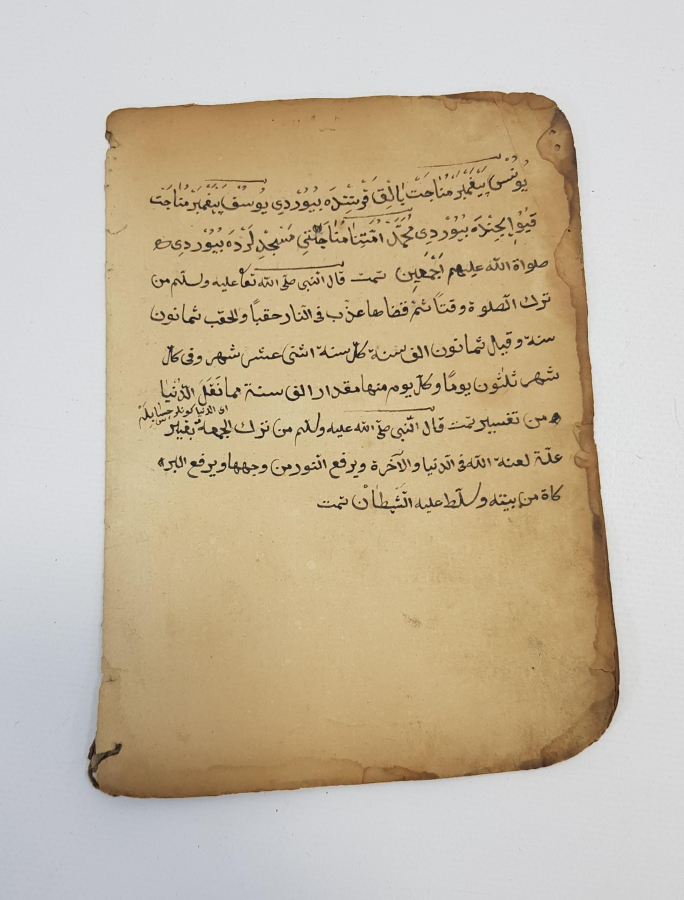 يُونُس پَيغَمبَر مُنَاجَتْ بَالِقْ قَرْنِنْدَه بُيُوْرْدِي يُوسُفْ پَيغَمبَر مُنَاجَتْ
قَيُو اِيچِنْدَه بيُوْرْدِي مُحَمَّد اُمَّتِنِنْ مُنَاجَاتَتِي مَسْجِدْلَرْدَه بُيُوْرْدِي
صلواة الله عليهم أجمعين تمت قال النبى صلى الله تعا عليه وسلم من
ترك الصلوة وقتا ثم قضاها عذب فى النار حقبًا والحقب ثمانون
سنة وقيل ثمانون الف سنة كل سنة اثنى عشر شهر وفى كل
شهر ثلثون يومًا وكل يوم منها مقدار الف سنة مما نقل الدنيا
من تفسير تمت قال النبى صلى الله عليه وسلم من ترك الجمعة بغير
علّة لعنة الله فى الدنيا والآخرة ويرفع النور من وجهها ويرفع البر
كاة من بيته وسلط عليه الشيطان تمت